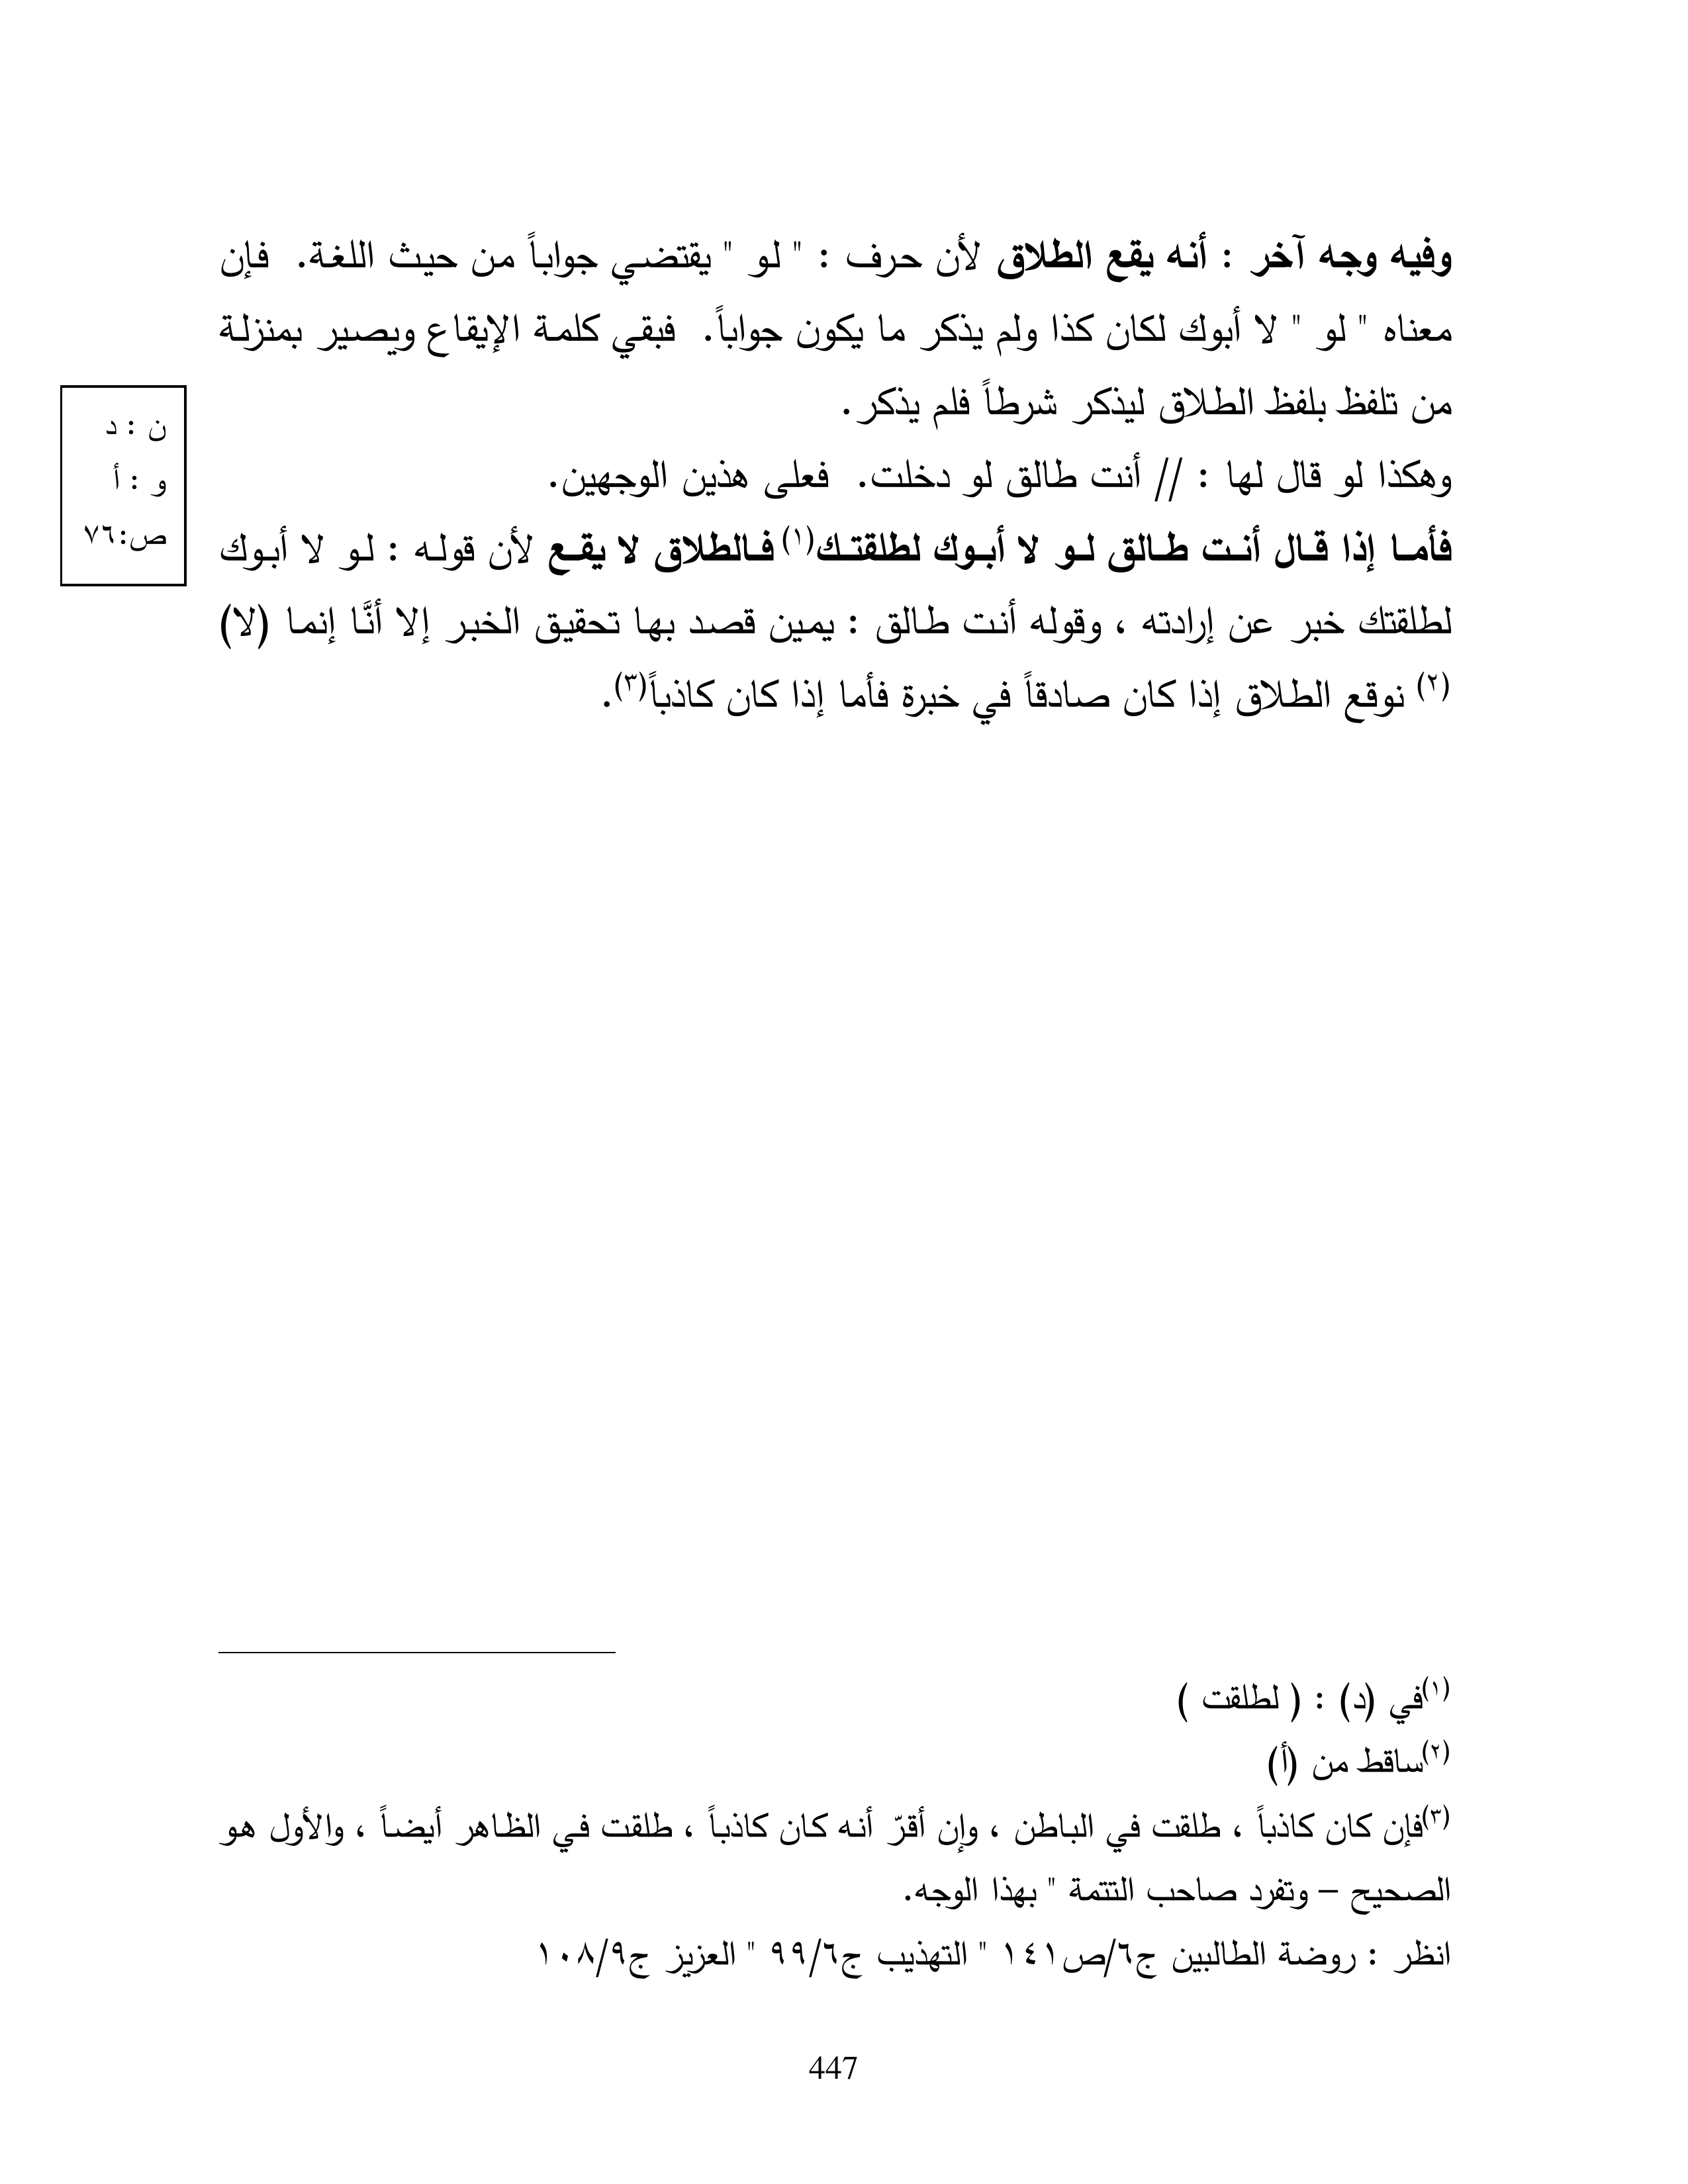 وفيه وجه آخر : أنه يقع الطلاق لأن حرف : " لو " يقتضي جواباً من حيث اللغة. فإن
معناه " لو " لا أبوك لكان كذا ولم يذكر ما يكون جواباً. فبقي كلمة الإيقاع ويصير بمنزلة
من تلفظ بلفظ الطلاق ليذكر شرطاً فلم يذكر.
وهكذا لو قال لها : // أنت طالق لو دخلت. فعلى هذين الوجهين.
فأما إذا قال أنت طالق لو لا أبوك لطلقتك(١) فالطلاق لا يقع لأن قوله : لو لا أبوك
لطلقتك خبر عن إرادته ، وقوله أنت طالق : يمين قصد بها تحقيق الخبر إلا أنَّا إنما (لا)
(٢) نوقع الطلاق إذا كان صادقاً في خبرة فأما إذا كان كاذباً(٣).
ن : د
و : أ
ص:٧٦
(١)في (د) : ( لطلقت )
(٢)ساقط من (أ)
(٣)فإن كان كاذباً ، طلقت في الباطن ، وإن أقرّ أنه كان كاذباً ، طلقت في الظاهر أيضاً ، والأول هو
الصحيح – وتفرد صاحب التتمة " بهذا الوجه.
انظر : روضة الطالبين ج٦/ص١٤١ " التهذيب ج٦/٩٩ " العزيز ج٩/١٠٨
447